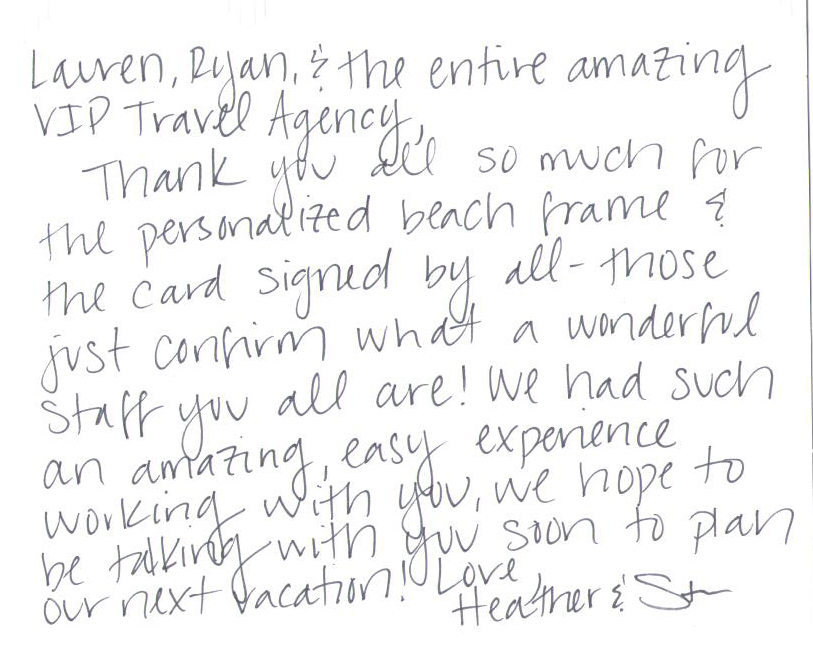 Lauren, Ryan, & the entire amazing
VIP Travel Agency,
Thank you all so much for
the personalized beach frame &
the card signed by all - those
just confirm what a wonderful
staff you all are! We had such
an amazing, easy experience
working with you, we hope to
be talking with you soon to plan
our next vacation! Love,
Heather &